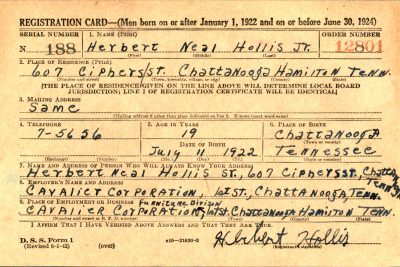 REGISTRATION CARD—(Men born on or after January 1, 1922 and on or before June 30, 1924)
SERIAL NUMBER 1. NAME (Print) ORDER NUMBER
N 188 Herbert Neal Hollis Jr. 12801
(First) (Middle) (Last)
2. PLACE OF RESIDENCE (Print)
607 Ciphers/St. Chattanooga Hamilton Tenn.
(Number and street) (Town, township, village, or city) (County) (State)
[THE PLACE OF RESIDENCE GIVEN ON THE LINE ABOVE WILL DETERMINE LOCAL BOARD
JURISDICTION; LINE 2 OF REGISTRATION CERTIFICATE WILL BE IDENTICAL]
3. MAILING ADDRESS
Same
(Mailing address if other than place indicated on line 2. If same insert word same)
4. TELEPHONE 5. AGE IN YEARS 6. PLACE OF BIRTH
7-5656 19 Chattanooga
DATE OF BIRTH (Town or county)
July 11 1922 Tennessee
(Exchange) (Number) (Mo.) (Day) (Yr.) (State or country)
7. NAME AND ADDRESS OF PERSON WHO WILL ALWAYS KNOW YOUR ADDRESS
Herbert Neal Hollis Sr., 607 Ciphers St., Chatta, Tenn.
8. EMPLOYER'S NAME AND ADDRESS
Cavalier Corporation, 1st St., Chattanooga, Tenn.
9. PLACE OF EMPLOYMENT OR BUSINESS Furniture Divison
Cavalier Corporation, 1st St. Chattanooga Hamilton Tenn.
I AFFIRM THAT I HAVE VERIFIED ABOVE ANSWERS AND THAT THEY ARE TRUE.
D. S. S. Form 1 16—21630-2 Herbert Hollis
(Revised 6-9-42) (over)